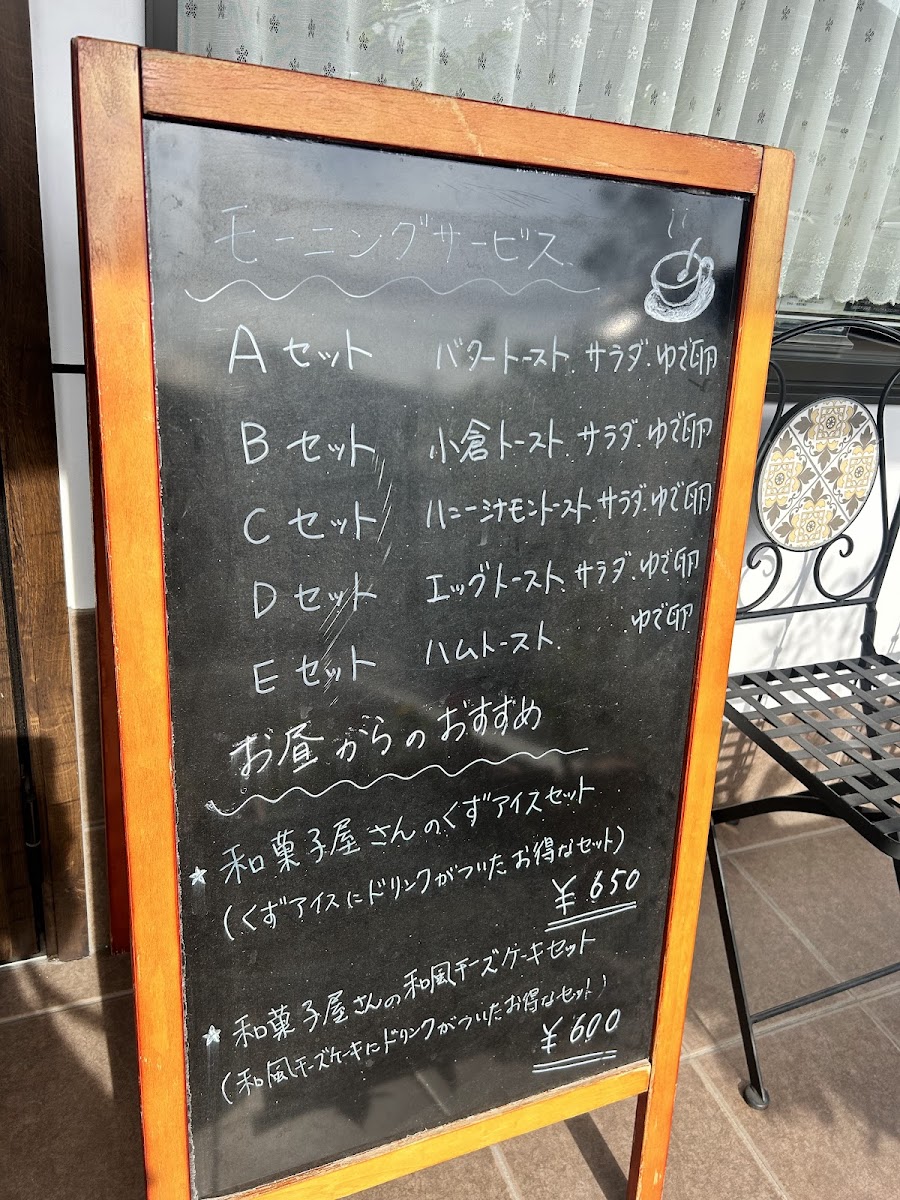 モーニングサービス
Aセット バタートースト.サラダ.ゆで卵
Bセット 小倉トースト.サラダ.ゆで卵
Cセット ハニーシナモントースト.サラダ.ゆで卵
Dセット エッグトースト.サラダ.ゆで卵
Eセット ハムトースト. ゆで卵
お昼からのおすすめ
★ 和菓子屋さんのくずアイスセット
(くずアイスにドリンクがついたお得なセット)
¥650
★ 和菓子屋さんの和風チーズケーキセット
(和風チーズケーキにドリンクがついたお得なセット)
¥600